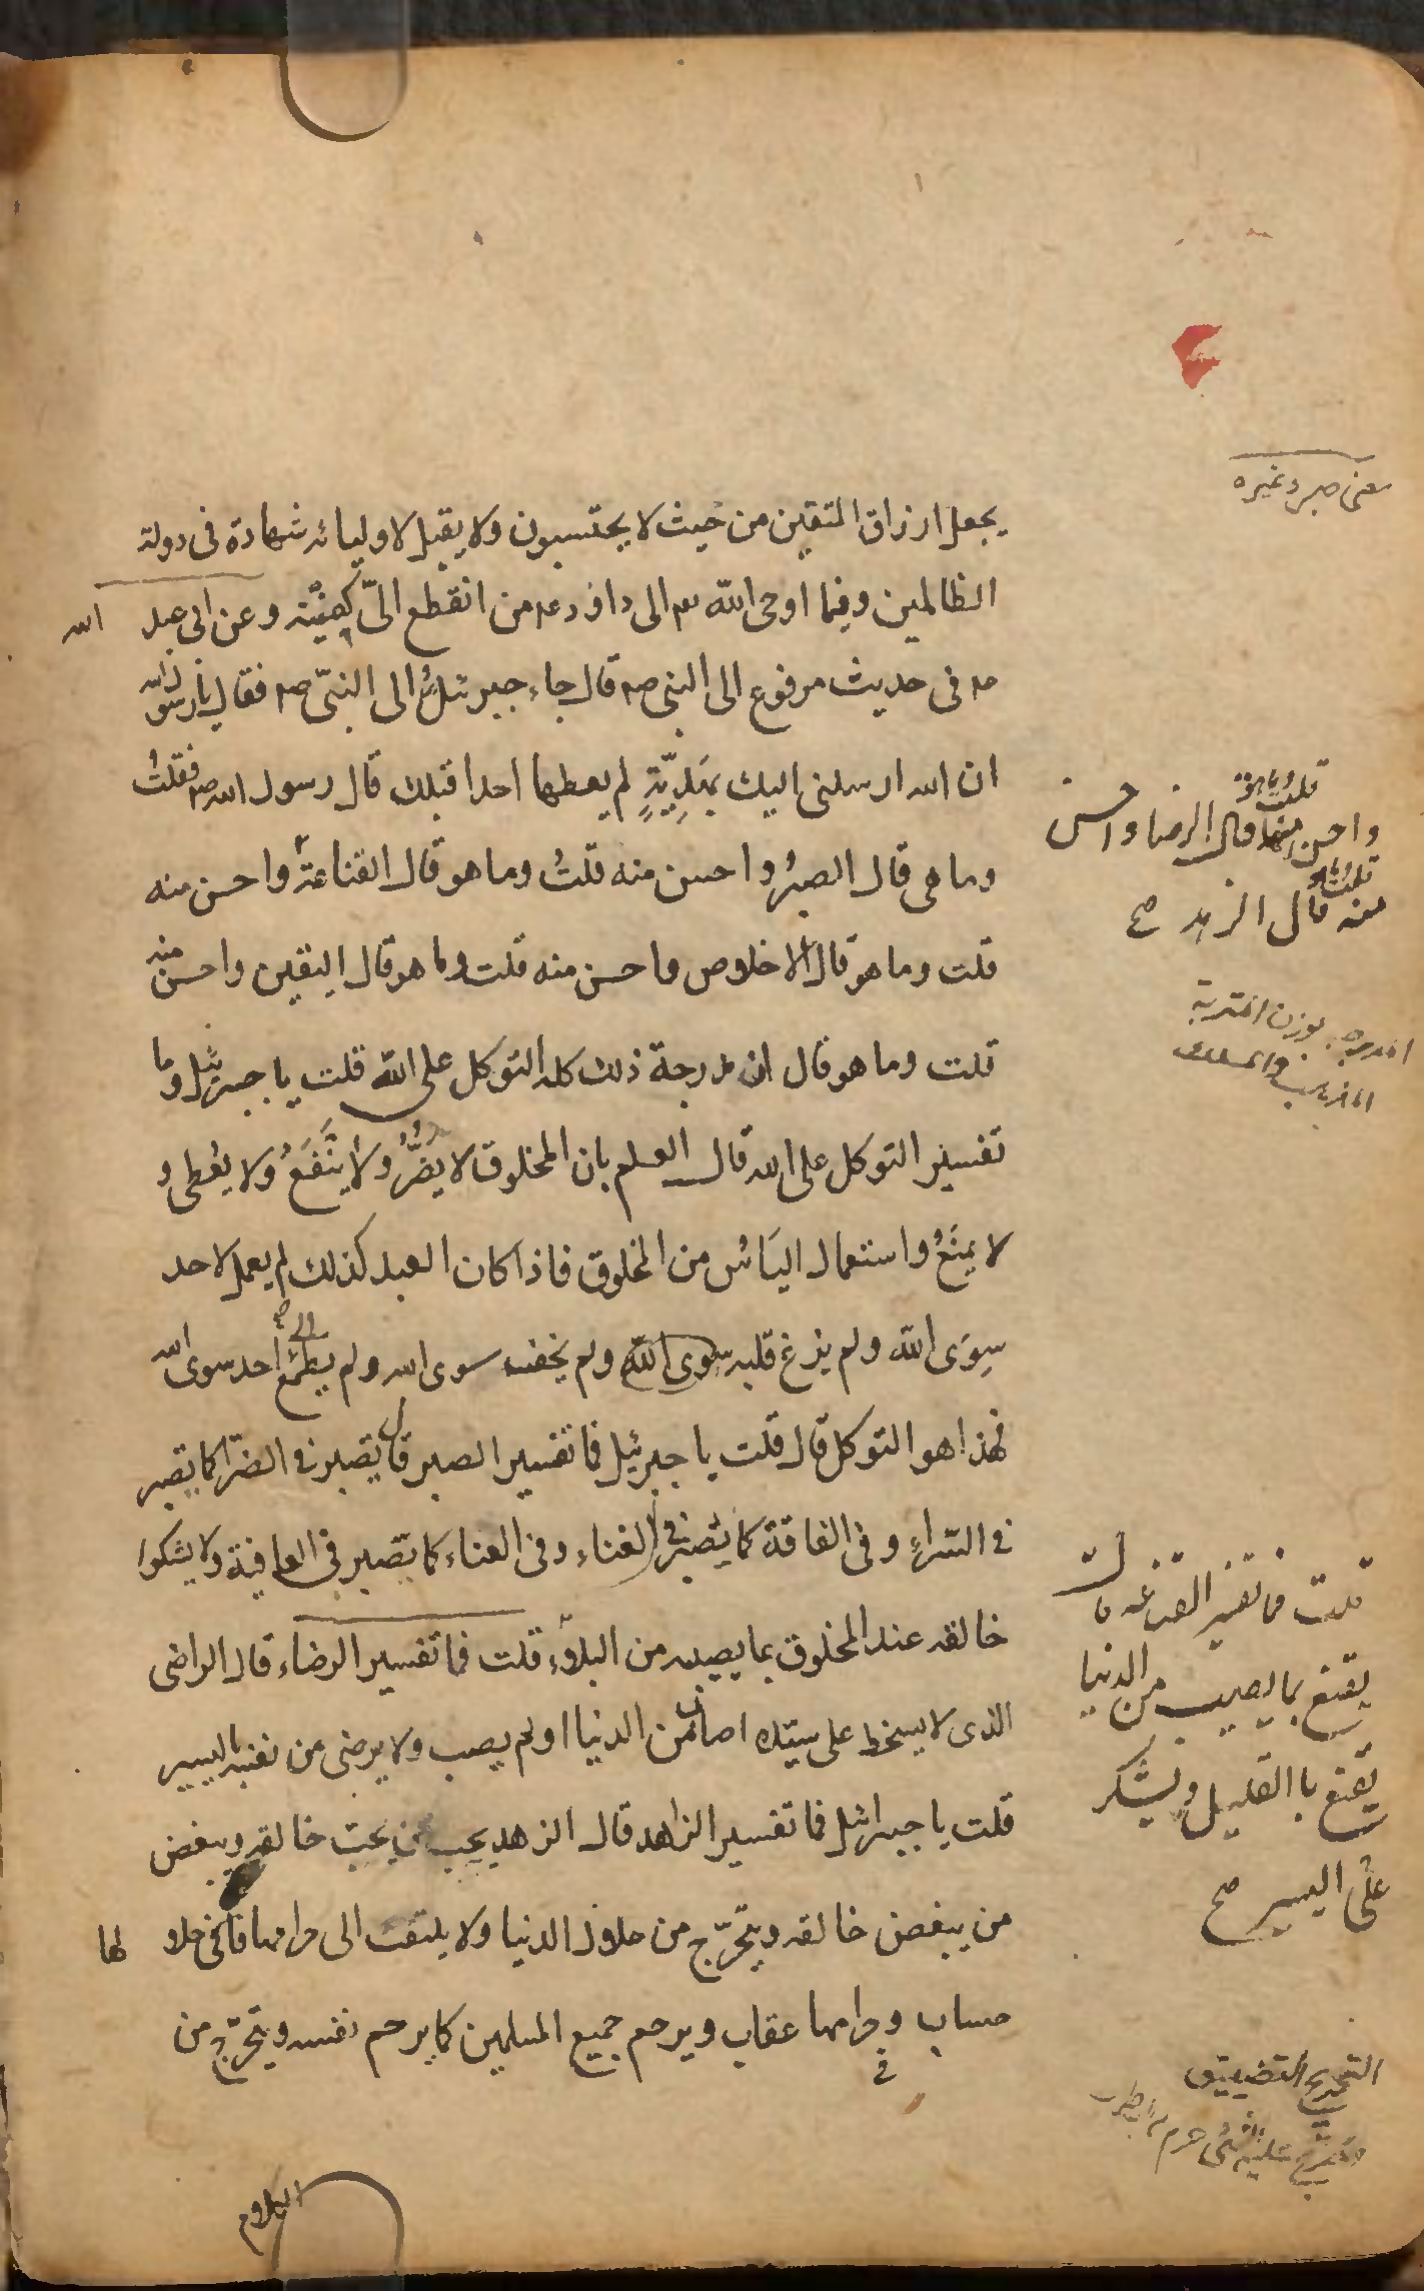 معنى صبر وغيره
يجعل ارزاق المتقين من حيث لا يحتسبون ولا يقبل لاوليائه شهادة فى دولة
الظالمين وفيما اوحى الله تع الى داود ع من انقطع الىّ كفيته وعن ابى عبد الله
ع فى حديث مرفوع الى النبى ص قال جاء جبرئيل الى النبىّ ص فقال يا رسول الله
ان الله ارسلنى اليك بهَدِيّةٍ لم يعطها احدا قبلك قال رسول الله ص فقلتُ
وما هى قال الصبرُ واحسن منه قلتُ وما هو قال القناعة واحسن منه
قلت وما هو قال الاخلاص واحسن منه قلت وما هو قال اليقين واحسن منه
قلت وما هو قال ان مدرجة ذلك كله التوكل على الله قلت يا جبرئيل وما
تفسير التوكل على الله قال العلم بان المخلوق لا يَضُرُّ ولا يَنْفَعُ ولا يعطى و
لا يمنَعُ واستعمال اليَاسُ من المخلوق فاذا كان العبد كذلك لم يعمل لاحد
سِوَى الله ولم يزغ قلبه سوى الله ولم يخف سوى الله ولم يطمع الى احد سوى الله
فهذا هو التوكل قال قلت يا جبرئيل فما تفسير الصبر قال يصبر فى الضرّا كما يصبر
فى السّراءِ وفى الفاقة كما يصبر فى الغناء وفى العناء كما يصبر فى العافية ولا يشكوا
خالقه عند المخلوق بما يصيبه من البلاء قلت فما تفسير الرضاء قال الراضى
الذى لا يسخط على سيّده اصاب من الدنيا او لم يصب ولا يرضى من نفسه باليسير
قلت يا جبرائيل فما تفسير الزاهد قال الزهد يحب من يحبّ خالقه ويبغض
من يبغض خالقه ويتحرّج من حلال الدنيا ولا يلتفت الى حرامها فان فى حلالها
حساب وفى حرامها عقاب ويرحم جميع المسلمين كما يرحم نفسه ويتحرّج من
الكلام
قلت وما هو
واحسن منها قال الرضا واحسن
قلت وما هو
منه قال الزهد صح
بوزن المتربة
المذهب والمسلك
قلت فما تفسير القناعة قال
يقنع بما يصيب من الدنيا
يقنع باالقليل ويشكر
على اليسير صح
التحريج التضييق
عليه الشئ حرم